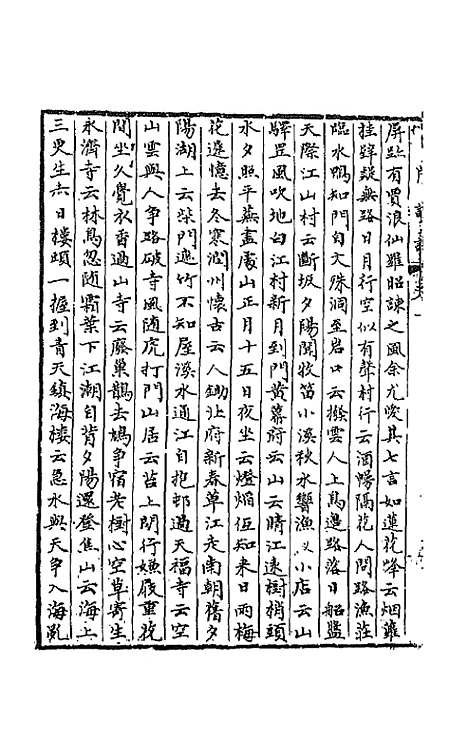 屏跡有賈浪仙雖昭諫之風余尤喚其七言如蓮花峰云烟蘿
挂壁疑無路日月行空似有聲村行云酒幔隔花人問路漁莊
臨水鷗知門自文殊洞至岩口云撥雲人上馬邊路落日船盤
天際江山村云斷坂夕陽閒牧笛小溪秋水響漁义小店云山
驛罡風吹地白江村新月到門黄幕府云山云晴江遠樹梢頭
水夕照平蕪畫處山正月十五日夜坐云燈煽恆知來日雨梅
花遲憶去冬寒潤州懷古云人鋤北府新春草江走南朝舊夕
陽湖上云柴門遮竹不知屋溪水通江自抱邨過天福寺云空
山雲與人爭路破寺風隨虎打門山居云苔上閒行嫌屐重花
間坐久覺衣香過山寺云廢巢鵲去鳩爭宿老樹心空草寄生
永濟寺云林鳥忽随霜葉下江潮自背夕陽還登焦山云海上
三更生六日樓頭一握到青天鎮海樓云急水與天爭入海亂